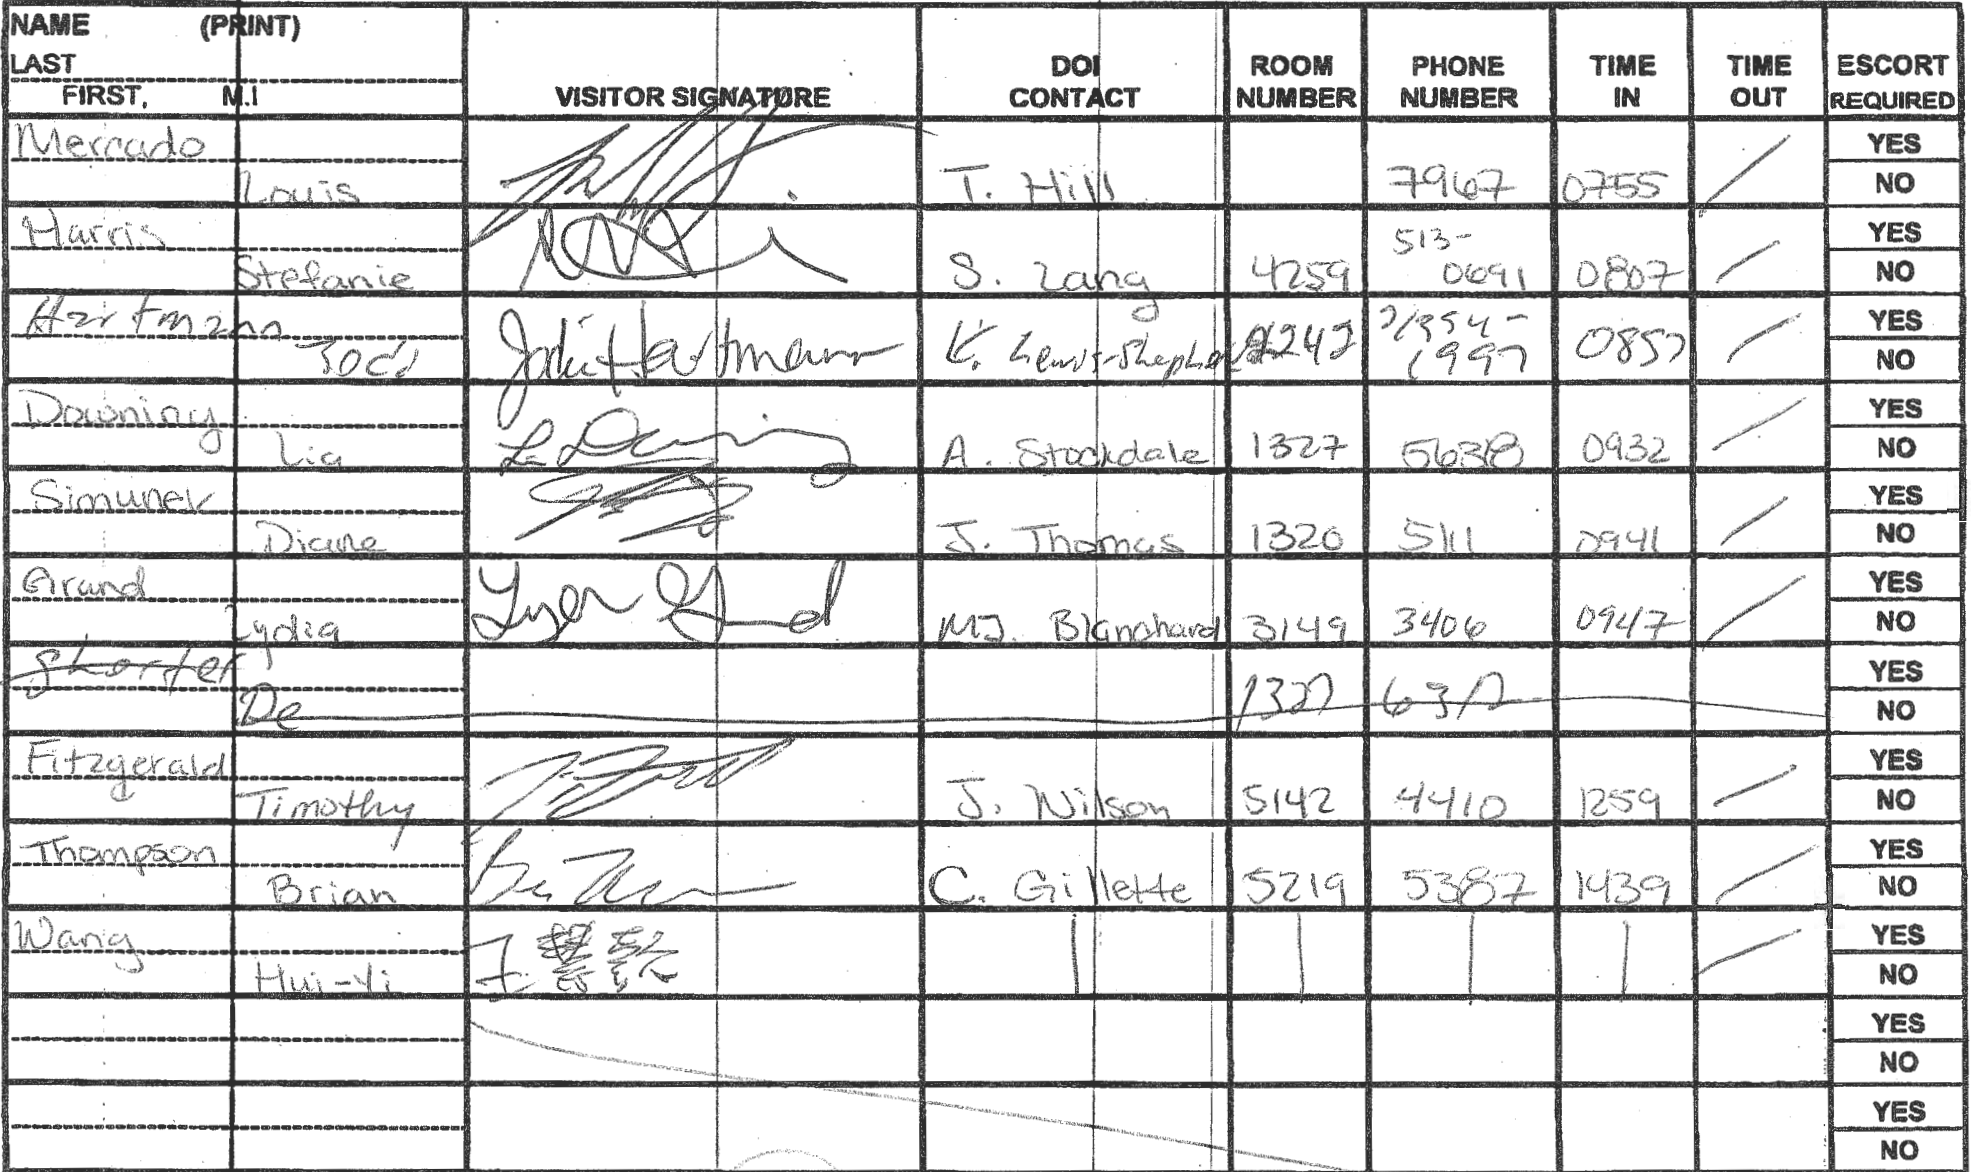 NAME (PRINT)
LAST
FIRST, M.I
VISITOR SIGNATURE
DOI CONTACT
ROOM NUMBER
PHONE NUMBER
TIME IN
TIME OUT
ESCORT REQUIRED
Mercado
Louis
T. Hill 7967 0755
YES
NO
Harris
Stefanie
S. Lang 4259 513-0691 0807
YES
NO
Hartmann
Hartmann
K. Lewis-Shepherd 0857
YES
NO
Downing
Lia
L. Downing
A. Stockdale 1327 0932
YES
NO
Simunek
Diane
J. Thomas 1320 5111 0941
YES
NO
Grand
Lydia
MJ. Blanchard 3149 3406 0947
YES
NO
Shorter
De
1327
YES
NO
Fitzgerald
Timothy
J. Nilson 5142 4410 1259
YES
NO
Thompson
Brian
C. Gillette 5219 5387 1439
YES
NO
Wang
Hui-Yi
YES
NO
YES
NO
YES
NO